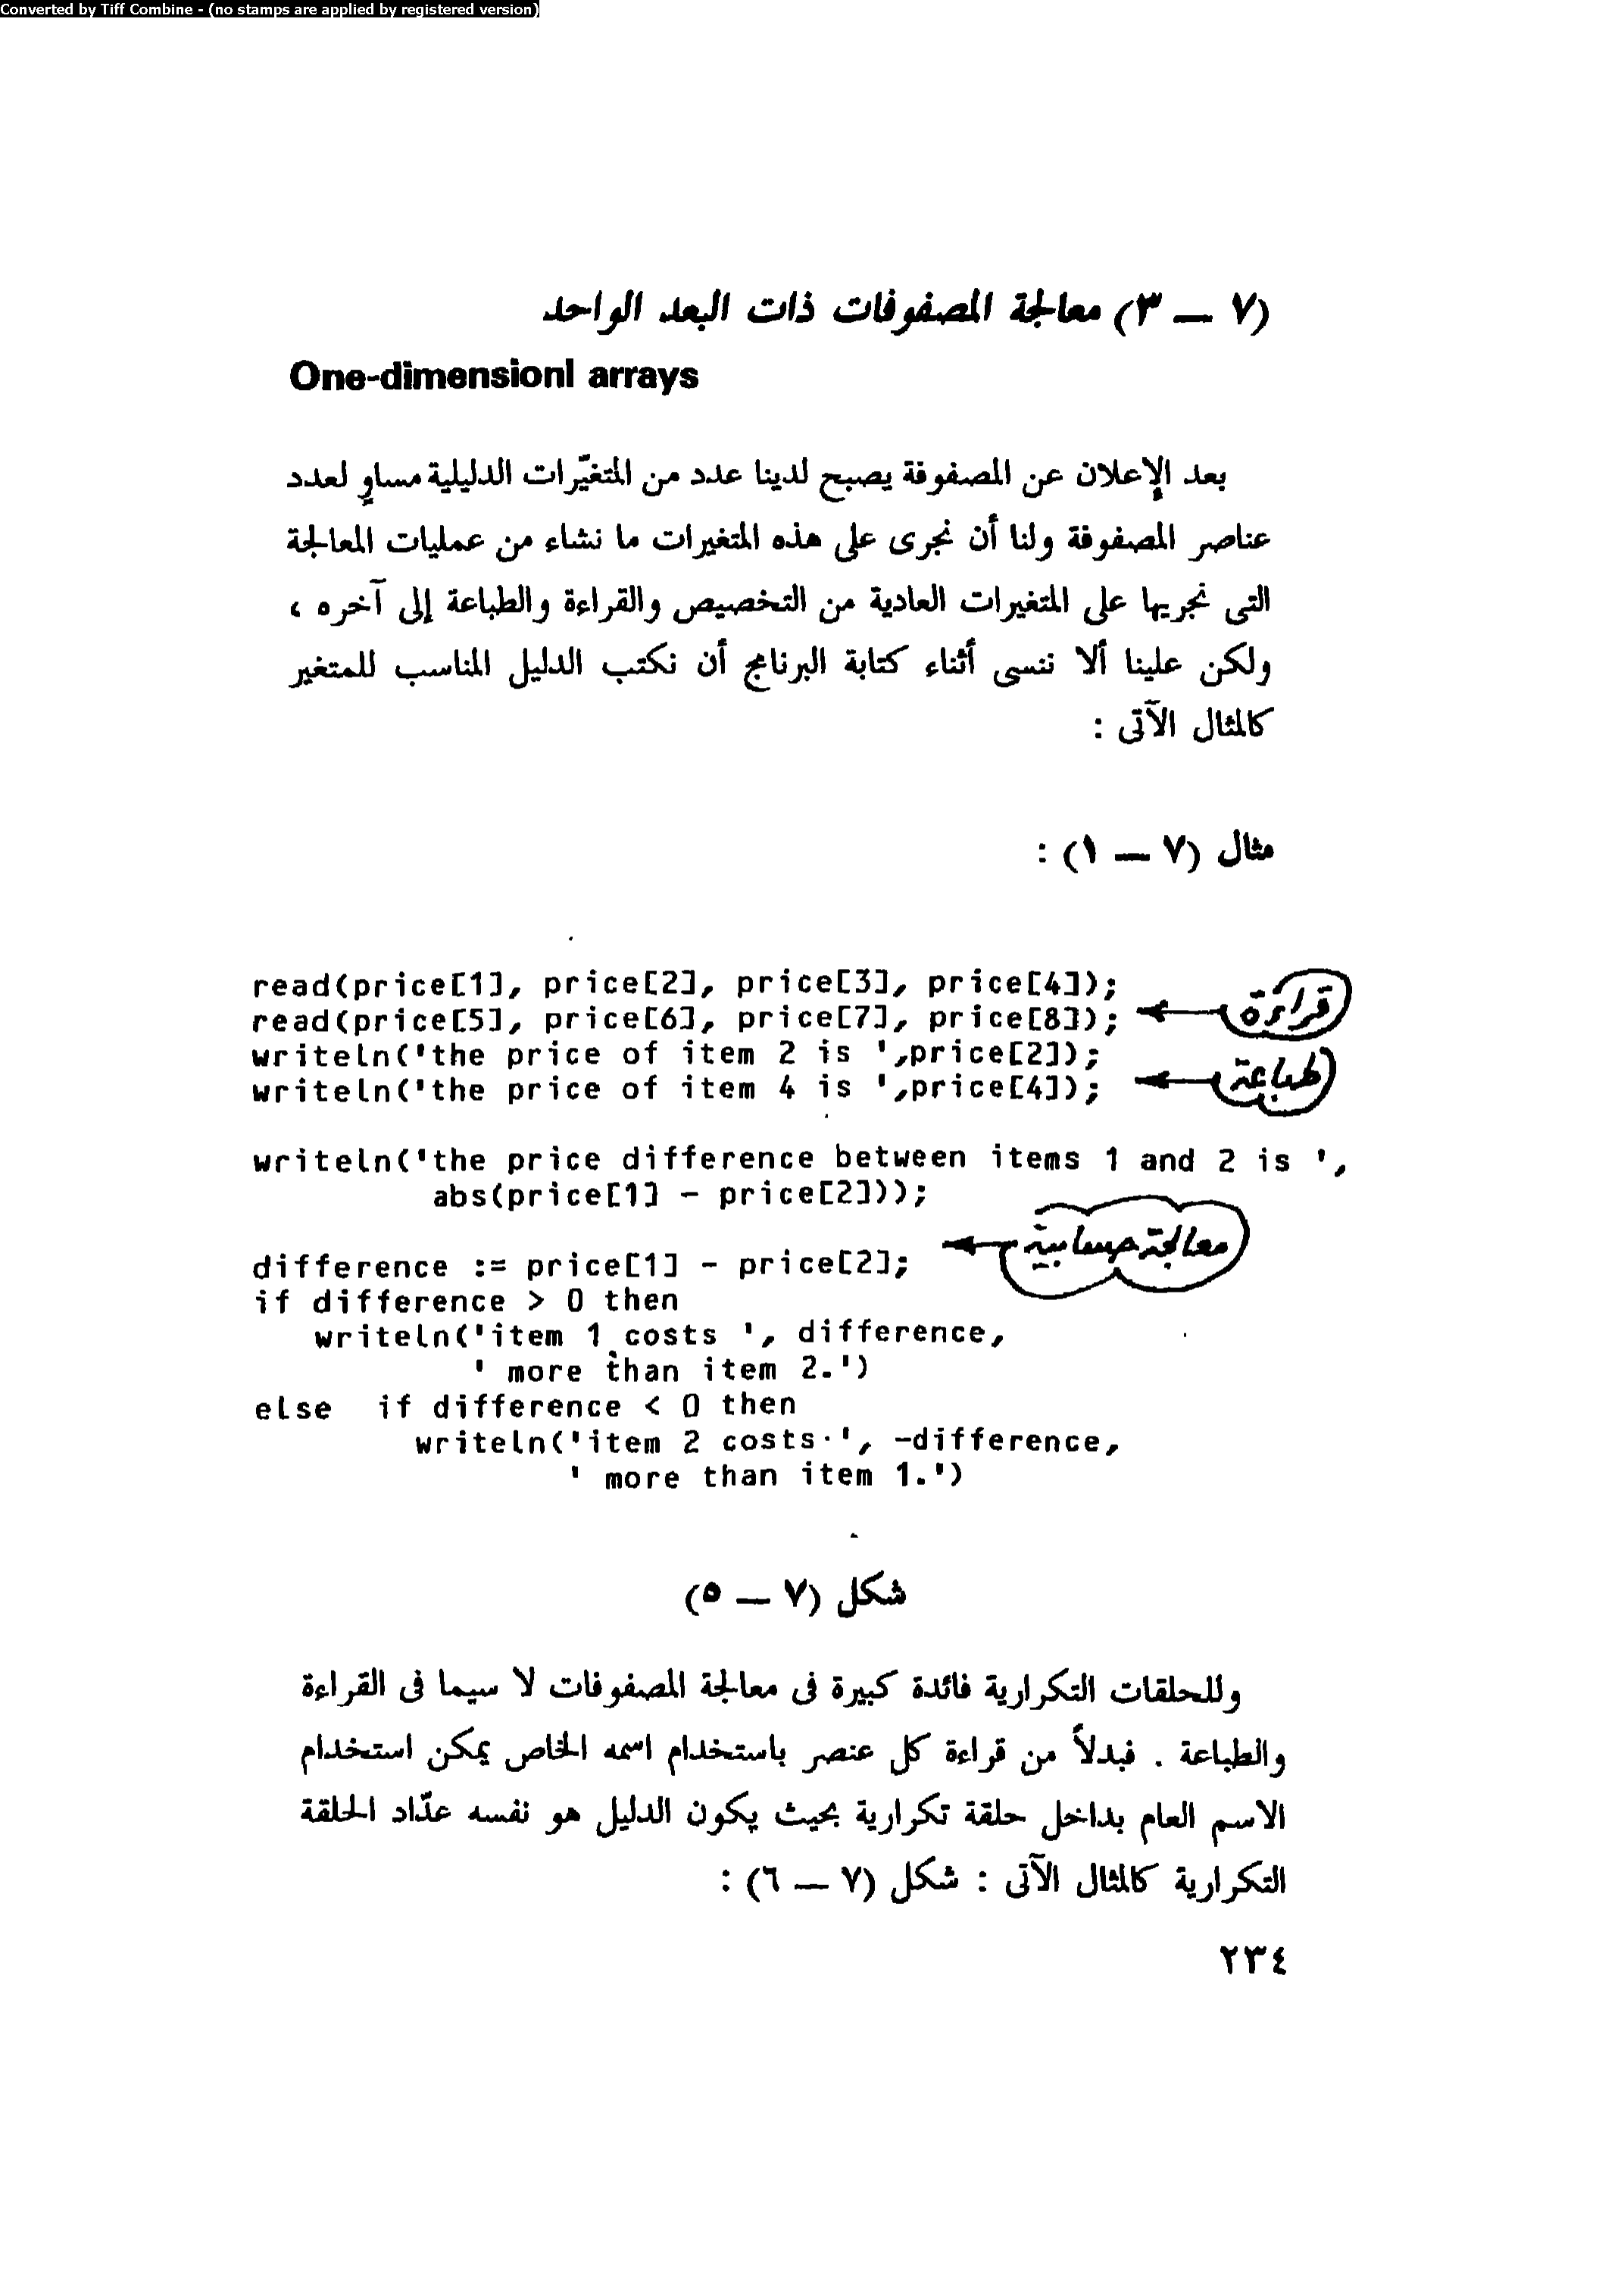 Converted by Tiff Combine - (no stamps are applied by registered version)
(٧ — ٣) معالجة المصفوفات ذات البعد الواحد
One-dimensionl arrays
بعد الإعلان عن المصفوفة يصبح لدينا عدد من المتغيّرات الدليلية مساوٍ لعدد
عناصر المصفوفة ولنا أن نجرى على هذه المتغيرات ما نشاء من عمليات المعالجة
التى نجريها على المتغيرات العادية من التخصيص والقراءة والطباعة إلى آخره ،
ولكن علينا ألا ننسى أثناء كتابة البرنامج أن نكتب الدليل المناسب للمتغير
كالمثال الآتى :
مثال (٧ — ١) :
read(price[1], price[2], price[3], price[4]);
read(price[5], price[6], price[7], price[8]); قراءة
writeln('the price of item 2 is ',price[2]);
writeln('the price of item 4 is ',price[4]); طباعة
writeln('the price difference between items 1 and 2 is ',
abs(price[1] - price[2]));
معالجة حسابية
difference := price[1] - price[2];
if difference > 0 then
writeln('item 1 costs ', difference,
' more than item 2.')
else  if difference < 0 then
writeln('item 2 costs ', -difference,
' more than item 1.')
شكل (٧ — ٥)
وللحلقات التكرارية فائدة كبيرة فى معالجة المصفوفات لا سيما فى القراءة
والطباعة . فبدلاً من قراءة كل عنصر باستخدام اسمه الخاص يمكن استخدام
الاسم العام بداخل حلقة تكرارية بحيث يكون الدليل هو نفسه عدّاد الحلقة
التكرارية كالمثال الآتى : شكل (٧ — ٦) :
٢٣٤